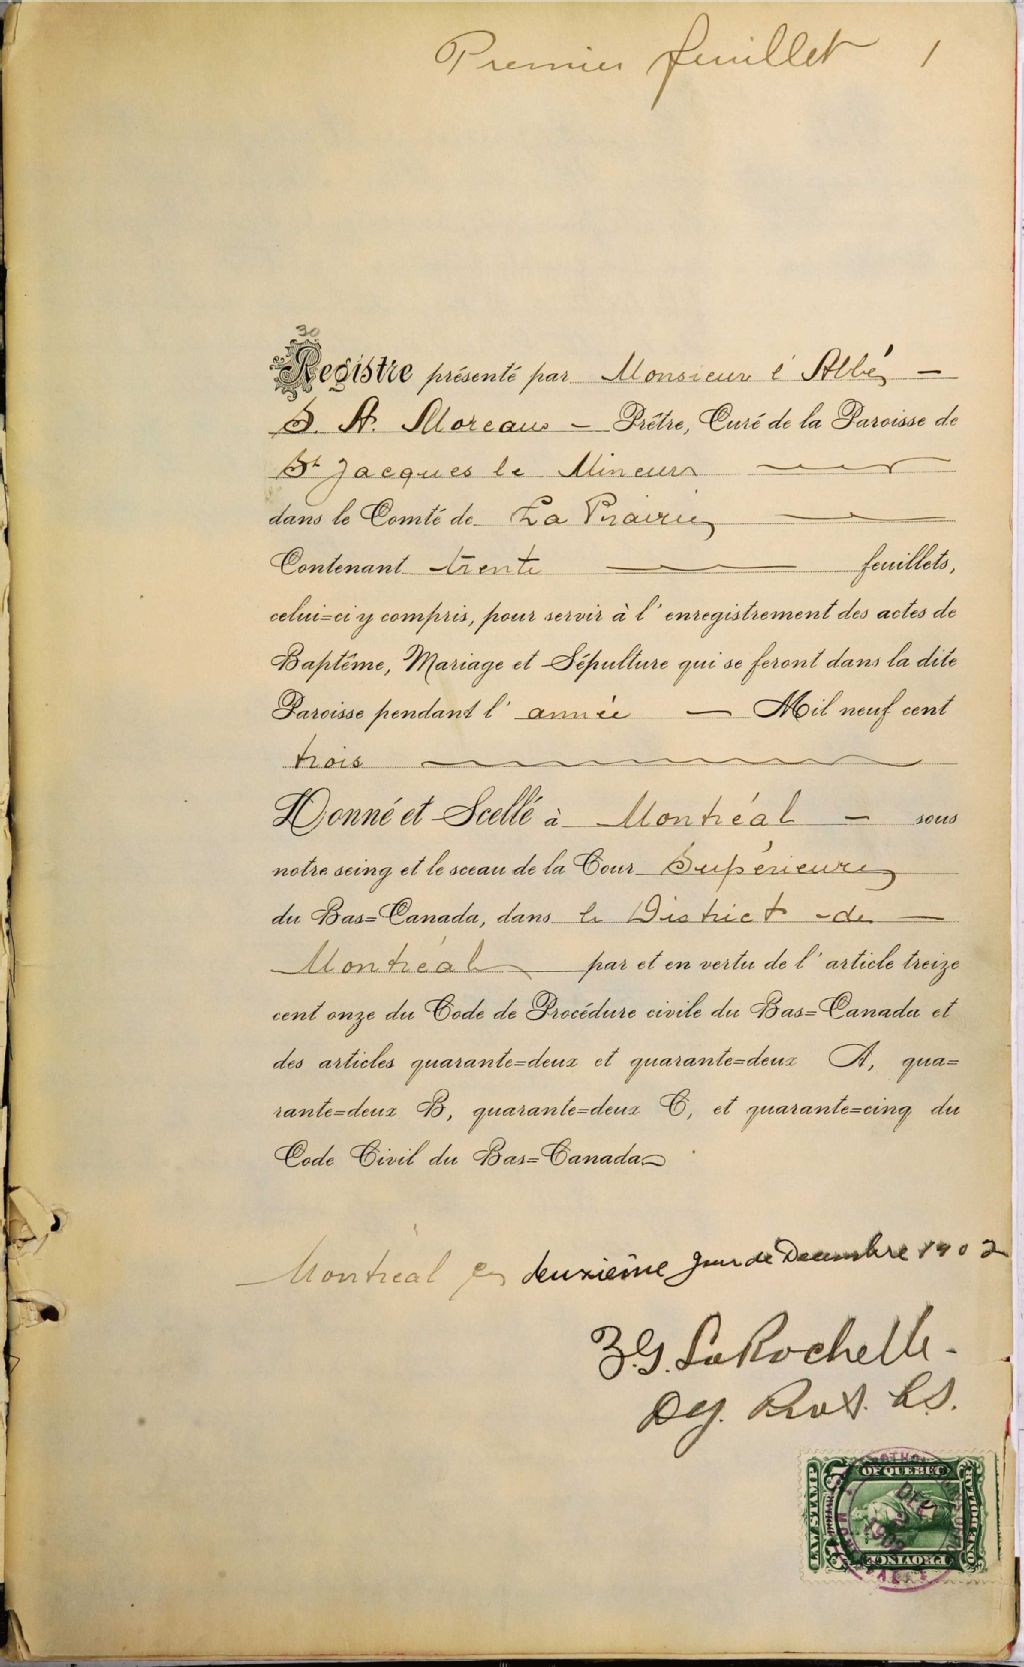 Premier feuillet 1
30
Registre présenté par Monsieur l'Abbé —
S. A. Moreau — Prêtre, Curé de la Paroisse de
St Jacques le Mineur
dans le Comté de La Prairie
Contenant trente — feuillets,
celui=ci y compris, pour servir à l'enregistrement des actes de
Baptême, Mariage et Sépulture qui se feront dans la dite
Paroisse pendant l'année — Mil neuf cent
trois
Donné et Scellé à Montréal — sous
notre seing et le sceau de la Cour Supérieure
du Bas=Canada, dans le District de —
Montréal par et en vertu de l'article treize
cent onze du Code de Procédure civile du Bas=Canada et
des articles quarante=deux et quarante=deux A, qua=
rante=deux B, quarante=deux C, et quarante=cinq du
Code Civil du Bas=Canada
Montréal ce deuxième jour de Decembre 1902
Z. G. LaRochelle -
Dy. Prot. C.S.
LAW STAMP
OF QUEBEC
PROVINCE
DEC
1902